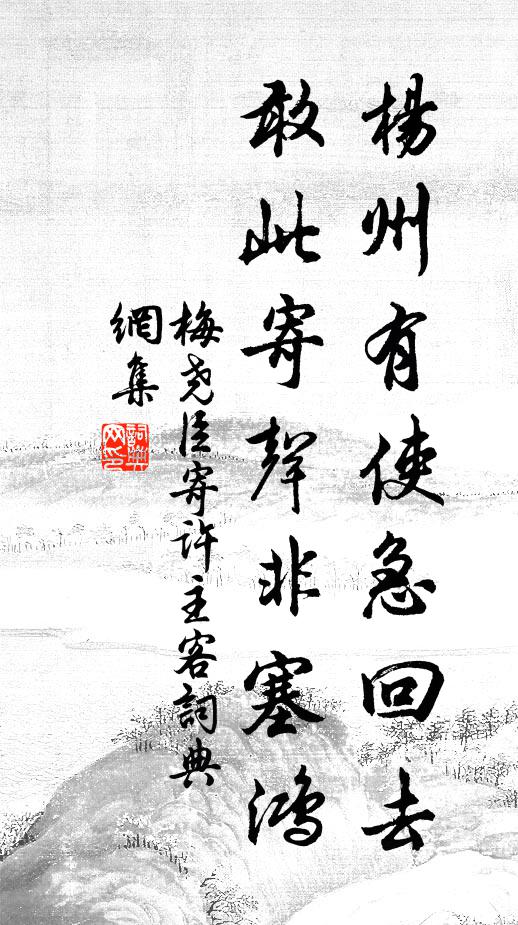 楊州有使急回去
敢此寄聲非塞鴻
梅堯臣寄許主客詞典
網集